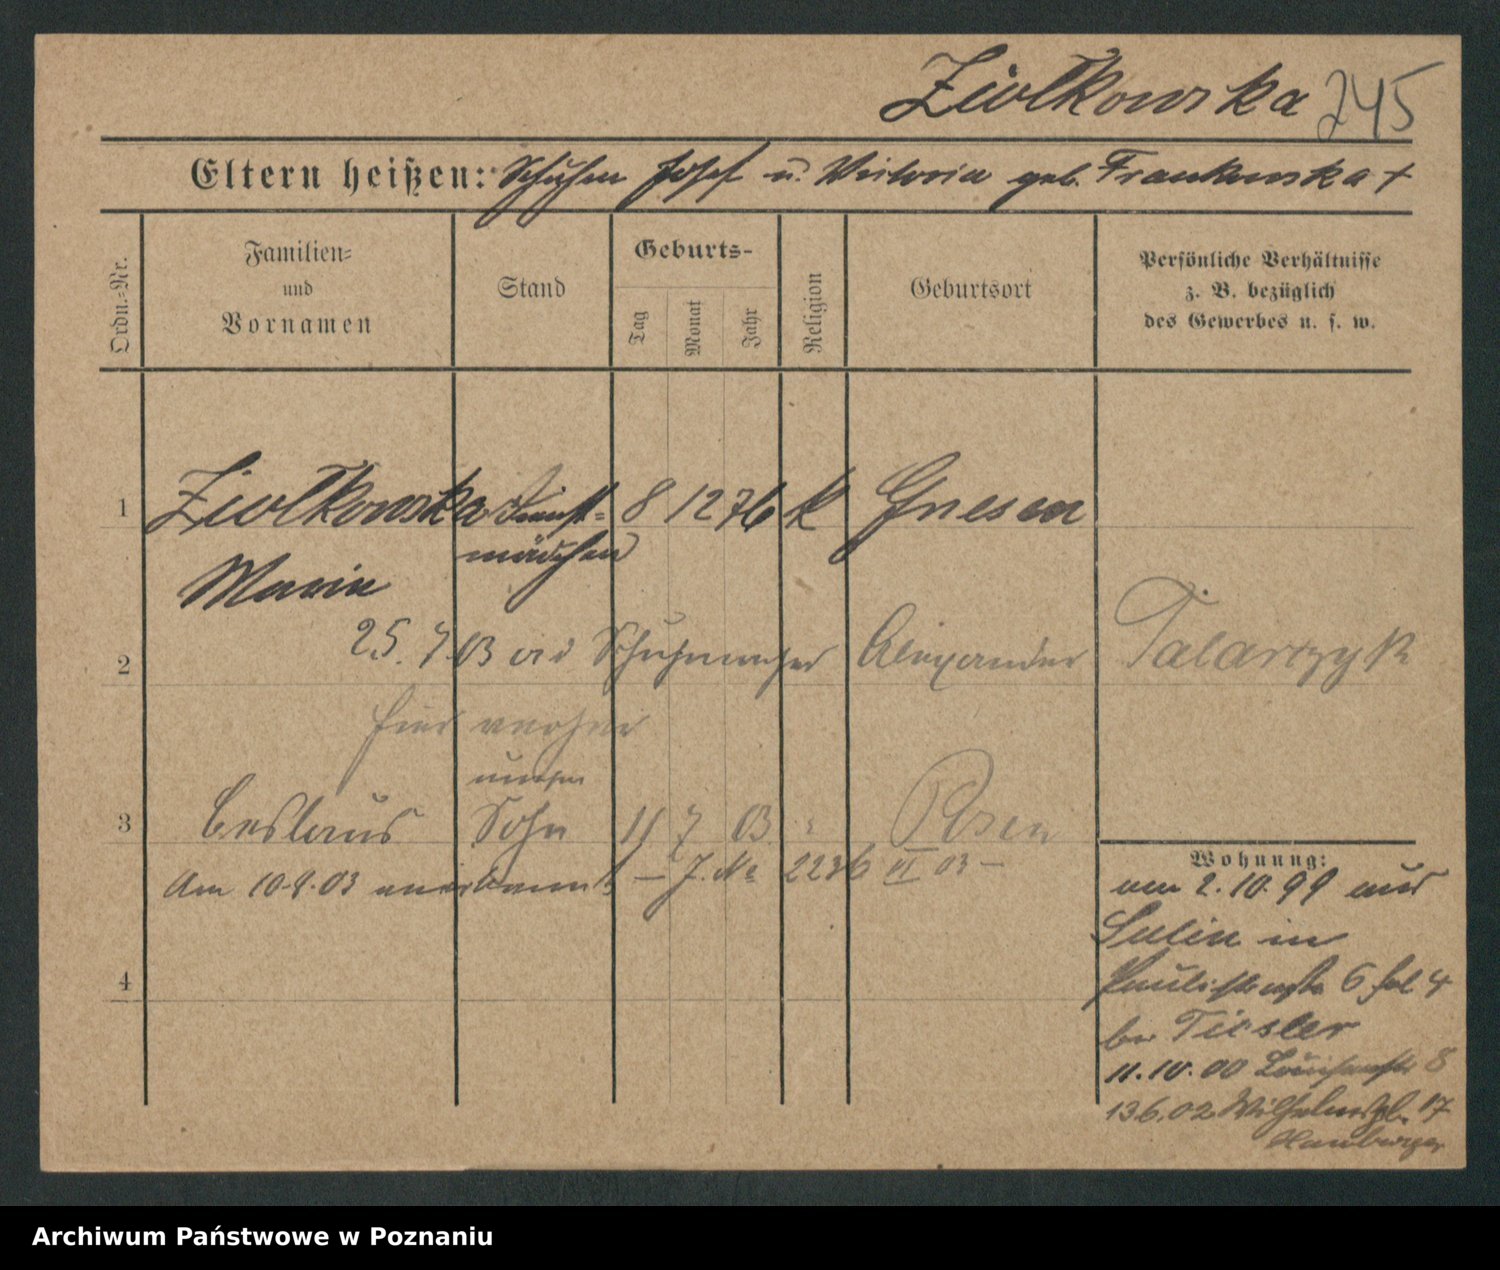 Ziolkowska 245
Eltern heißen: Josef u. Victoria geb. Frankowska +
Ordn.=Nr.
Familien=
und
Vornamen
Stand
Geburts-
Tag
Monat
Jahr
Religion
Geburtsort
Persönliche Verhältnisse
z. B. bezüglich
des Gewerbes u. s. w.
1 Ziolkowska Dienst= 8 12 76 k Gnesen
mädchen
Maria
2 25. 7. 03 Schuhmacher Alexander Talarczyk
hier
unehe
3 Ceslaus Sohn 11 7 03 Posen
Am 10.9.03 anerkannt – J. No 2236 VI 03 –
4
Wohnung:
am 2.10.99 aus
in
Paulikirchstr 6 hol 4
bei Tiesler
11.10.00 Louisenstr 8
13.6.02 Wilhelmspl. 17
Hamburger
Archiwum Państwowe w Poznaniu